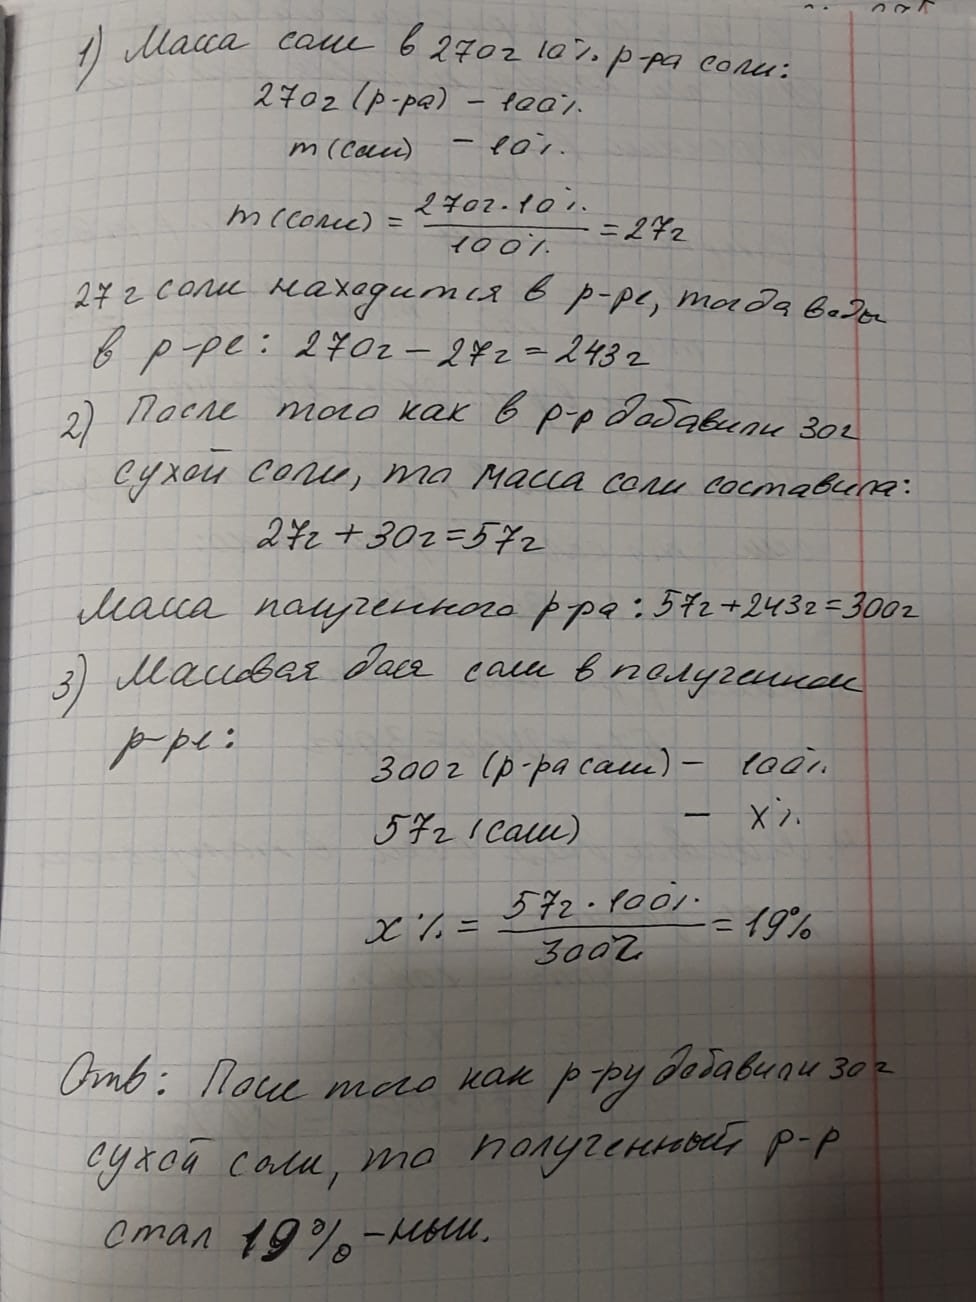 1) Масса соли в 270г 10% р-ра соли:
270г (р-ра) - 100%
m(соли) - 10%
m(соли) = 270г·10% / 100% = 27г
27г соли находится в р-ре, тогда воды
в р-ре: 270г - 27г = 243г
2) После того как в р-р добавили 30г
сухой соли, то масса соли составила:
27г + 30г = 57г
Масса полученного р-ра: 57г + 243г = 300г
3) Массовая доля соли в полученном
р-ре:
300г (р-ра соли) - 100%
57г (соли) - х%
х% = 57г·100% / 300г = 19%
Отв: После того как р-ру добавили 30г
сухой соли, то полученный р-р
стал 19%-ным.